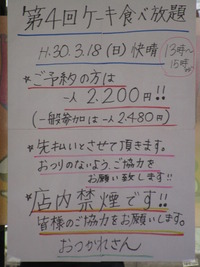 第4回ケーキ食べ放題
H.30.3.18(日)快晴
13時~
15時
*ご予約の方は
一人 2.200円!!
(一般参加は一人2480円)
*先払いとさせて頂きます。
おつりのないよう、ご協力を
お願い致します!!
*店内禁煙です!!
皆様のご協力をお願いします。
おつかれさん